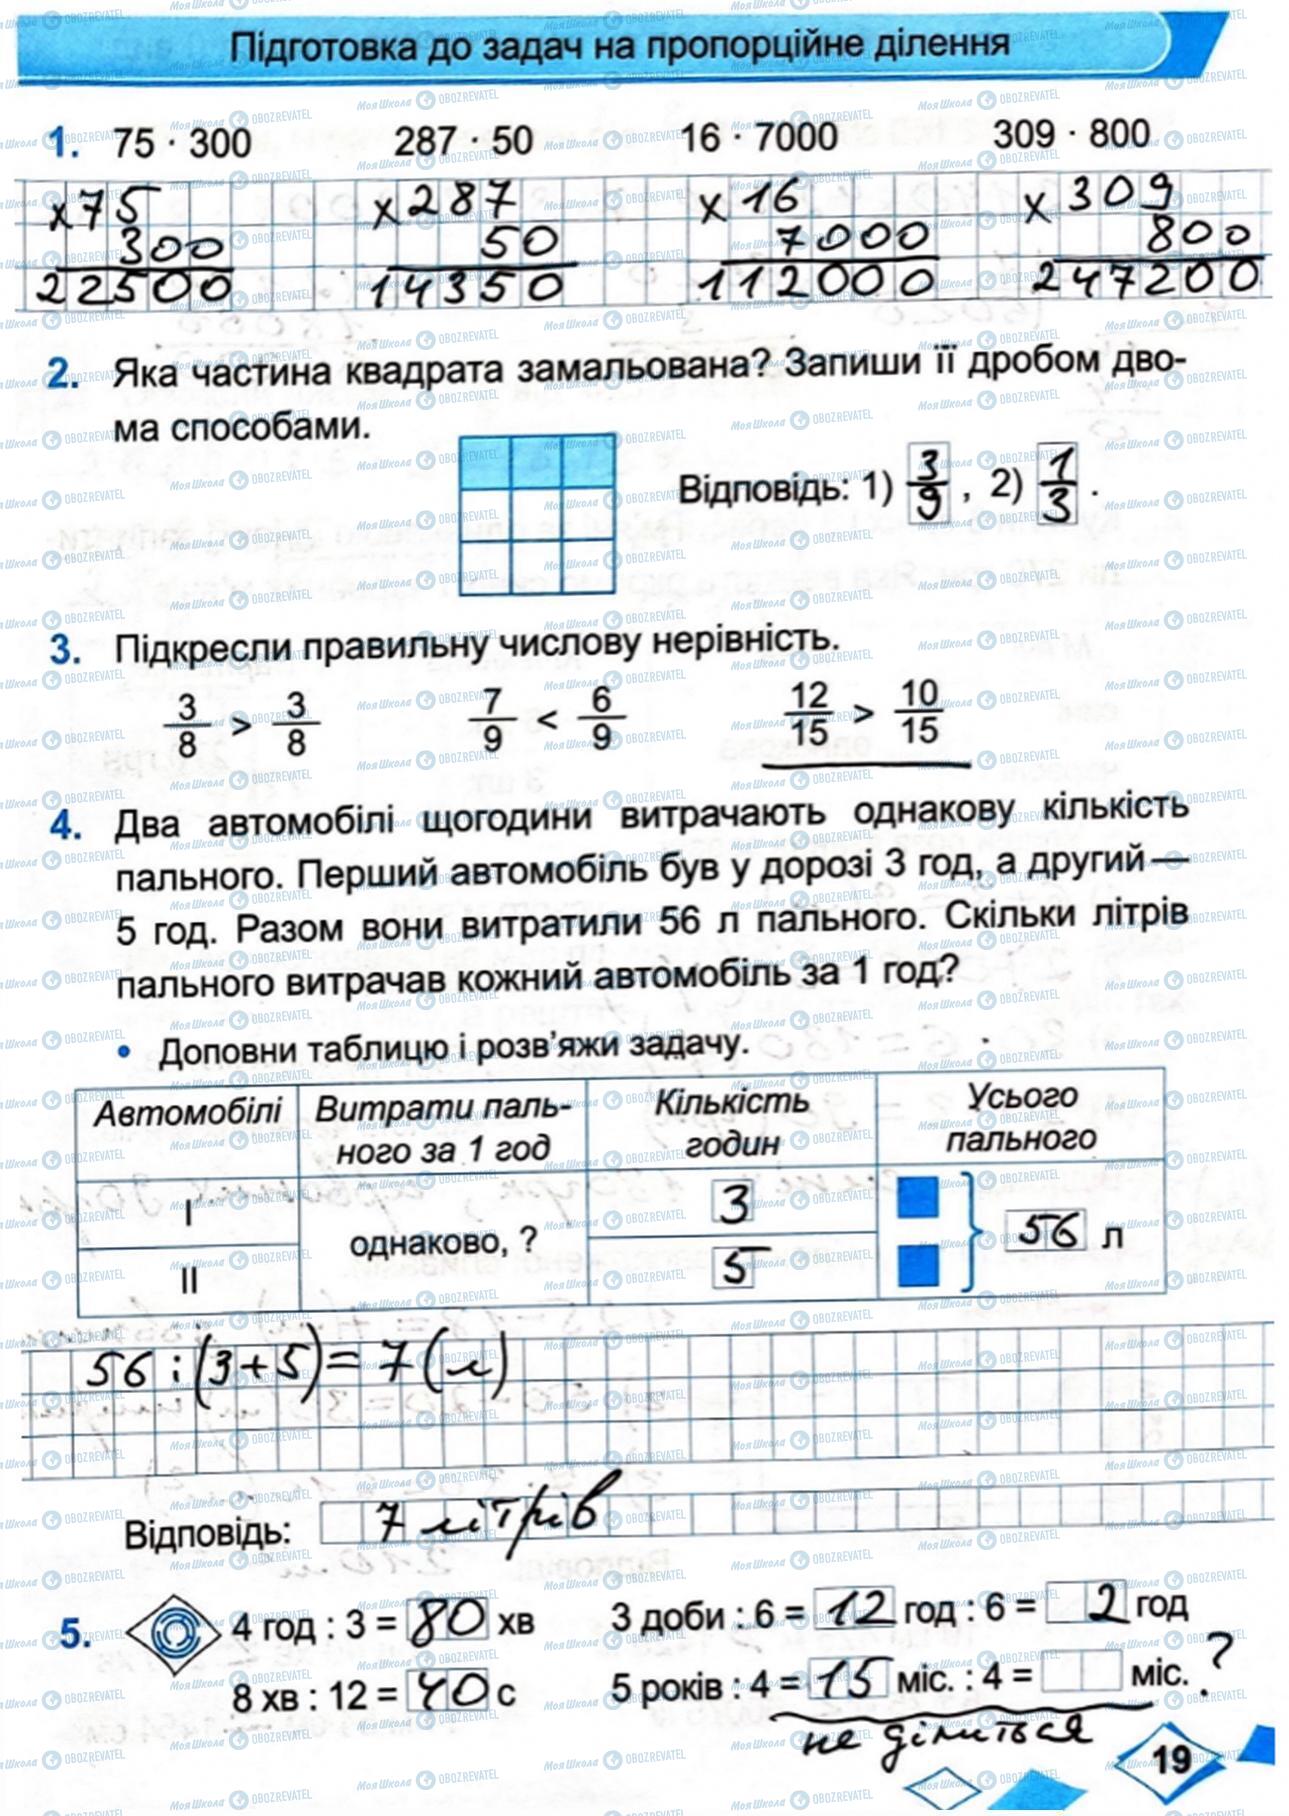 Підготовка до задач на пропорційне ділення
1. 75 · 300 287 · 50 16 · 7000 309 · 800
× 75 × 287 × 16 × 309
300 50 7000 800
22500 14350 112000 247200
2. Яка частина квадрата замальована? Запиши її дробом дво-
ма способами.
Відповідь: 1) 3/9 , 2) 1/3 .
3. Підкресли правильну числову нерівність.
3/8 > 3/8 7/9 < 6/9 12/15 > 10/15
4. Два автомобілі щогодини витрачають однакову кількість
пального. Перший автомобіль був у дорозі 3 год, а другий —
5 год. Разом вони витратили 56 л пального. Скільки літрів
пального витрачав кожний автомобіль за 1 год?
• Доповни таблицю і розв’яжи задачу.
Автомобілі Витрати паль- Кількість Усього
ного за 1 год годин пального
I 3
однаково, ? 56 л
II 5
56 : (3+5) = 7 (л)
Відповідь: 7 літрів
5. 4 год : 3 = 80 хв 3 доби : 6 = 12 год : 6 = 2 год
8 хв : 12 = 40 с 5 років : 4 = 15 міс. : 4 = міс. ?
не ділиться
19
МояШкола OBOZREVATEL